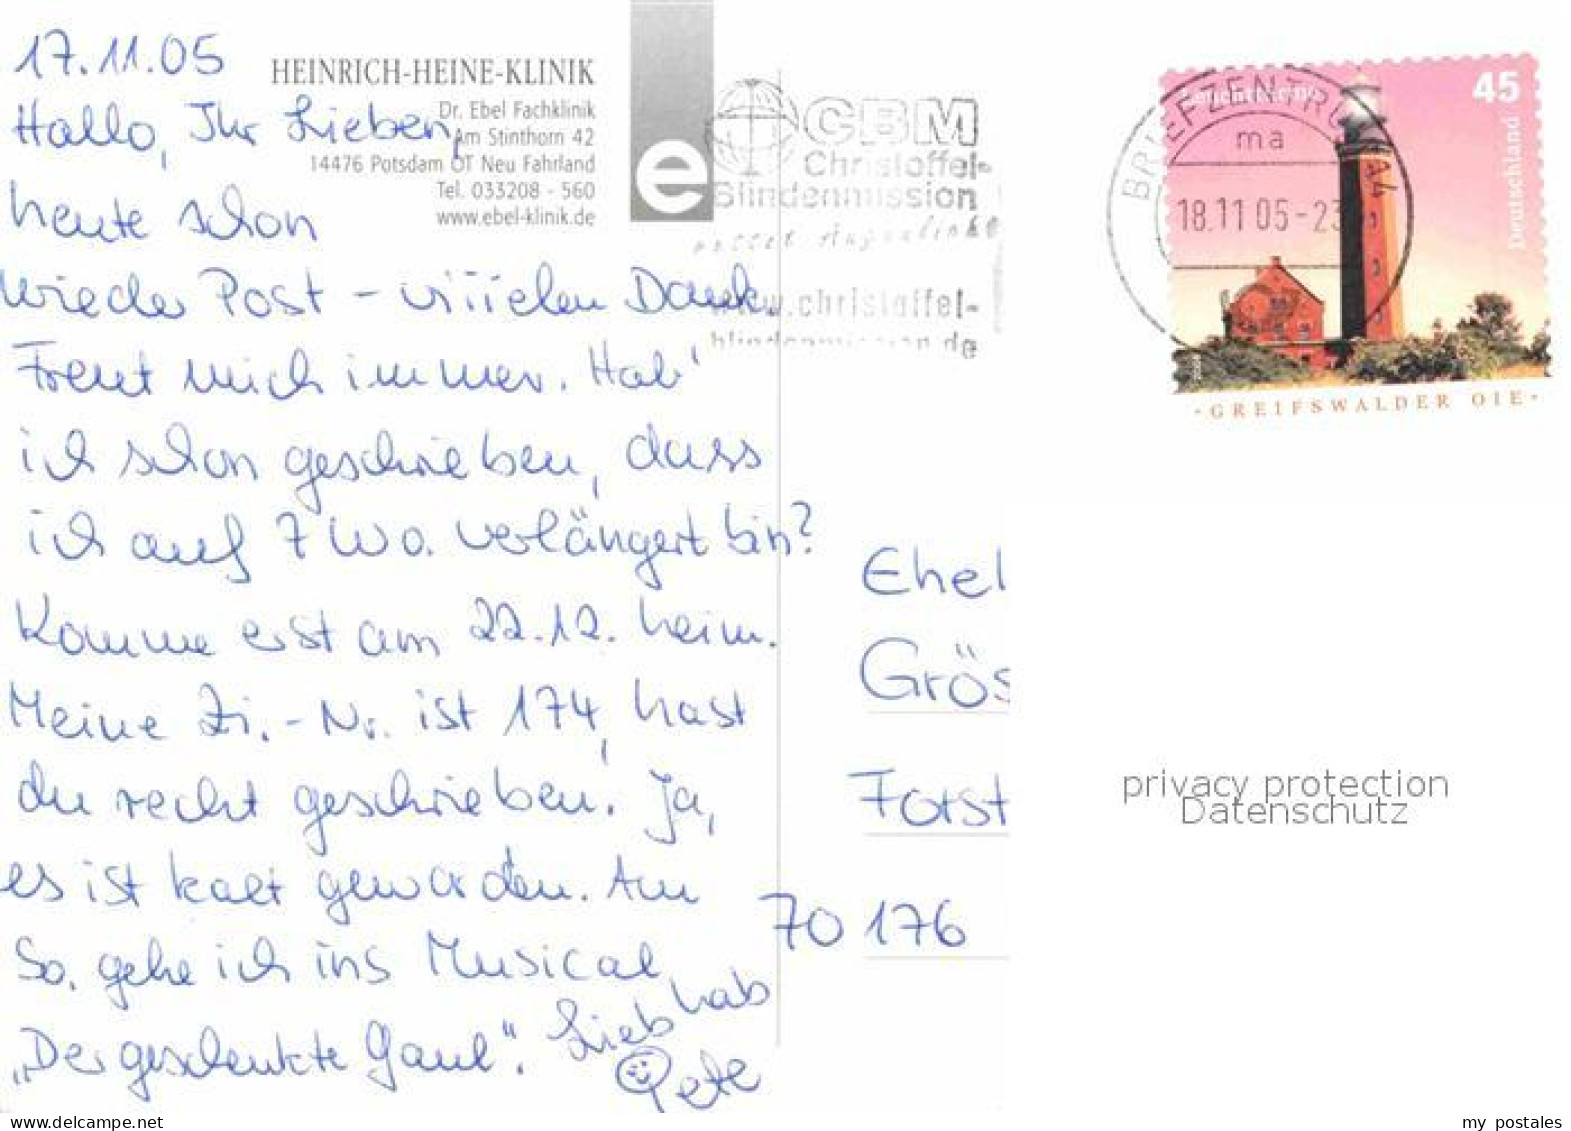 17.11.05
HEINRICH-HEINE-KLINIK
Dr. Ebel Fachklinik
Am Stinthorn 42
14476 Potsdam OT Neu Fahrland
Tel. 033208 - 560
www.ebel-klinik.de
e
Hallo, Ihr Lieben,
heute schon
wieder Post - viiielen Dank.
Freut mich immer. Hab'
ich schon geschrieben, dass
ich auf 7 Wo. verlängert bin?
Komme erst am 22.12. heim.
Meine Zi.-Nr. ist 174, hast
du recht geschrieben. Ja,
es ist kalt geworden. Am
So. gehe ich ins Musical
"Der geschenkte Gaul". Lieb hab
Pete
CBM
Christoffel-
Blindenmission
www.christoffel-
blindenmission.de
BRIEFZENTRUM
ma
18.11.05-23
Leuchttürme
45
Deutschland
·GREIFSWALDER OIE·
Ehel
Grös
Forst
70176
privacy protection
Datenschutz
my postales